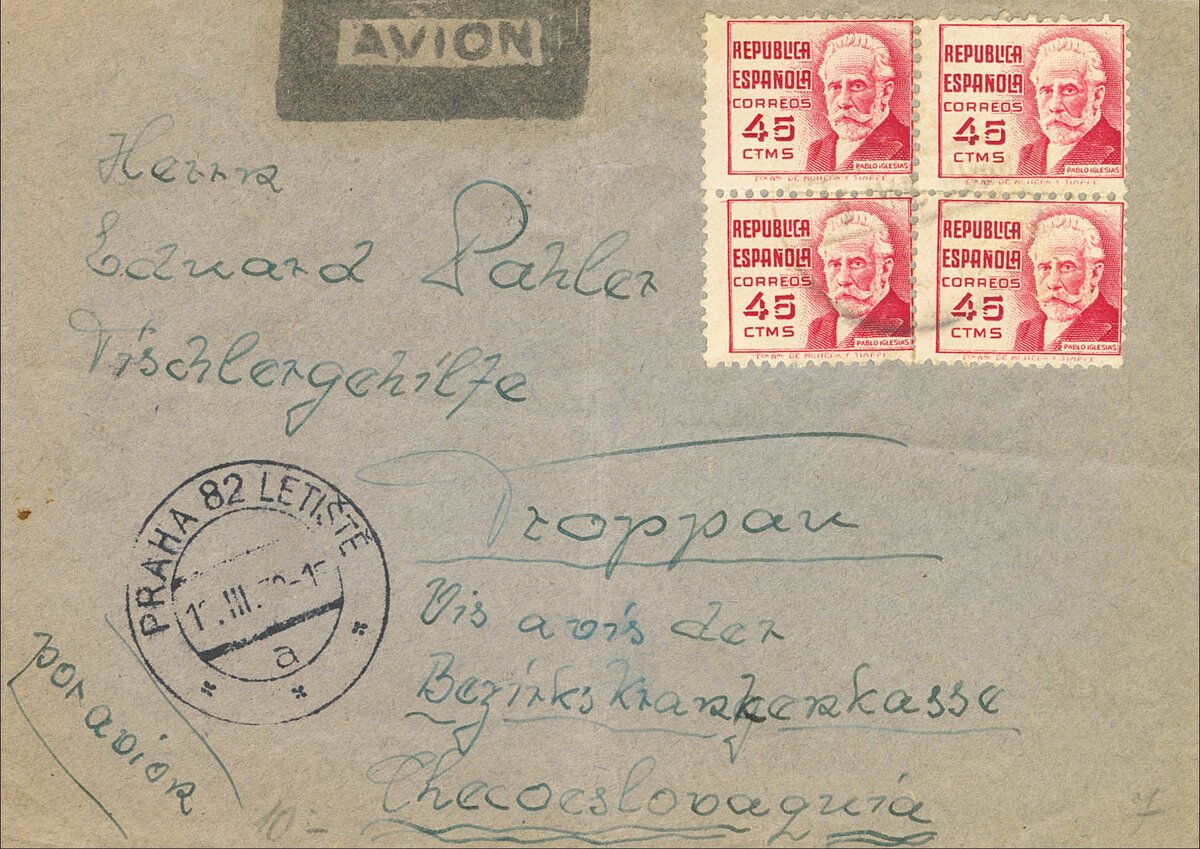 AVION
REPUBLICA
ESPAÑOLA
CORREOS
45
CTMS
PABLO IGLESIAS
REPUBLICA
ESPAÑOLA
CORREOS
45
CTMS
PABLO IGLESIAS
REPUBLICA
ESPAÑOLA
CORREOS
45
CTMS
PABLO IGLESIAS
REPUBLICA
ESPAÑOLA
CORREOS
45
CTMS
PABLO IGLESIAS
Herrn
Eduard Pahler
Tischlergehilfe
Troppau
Vis avis der
Bezirkskrankenkasse
Checoeslovaquia
PRAHA 82 LETIŠTĚ
.III.
a
por avion
10.-